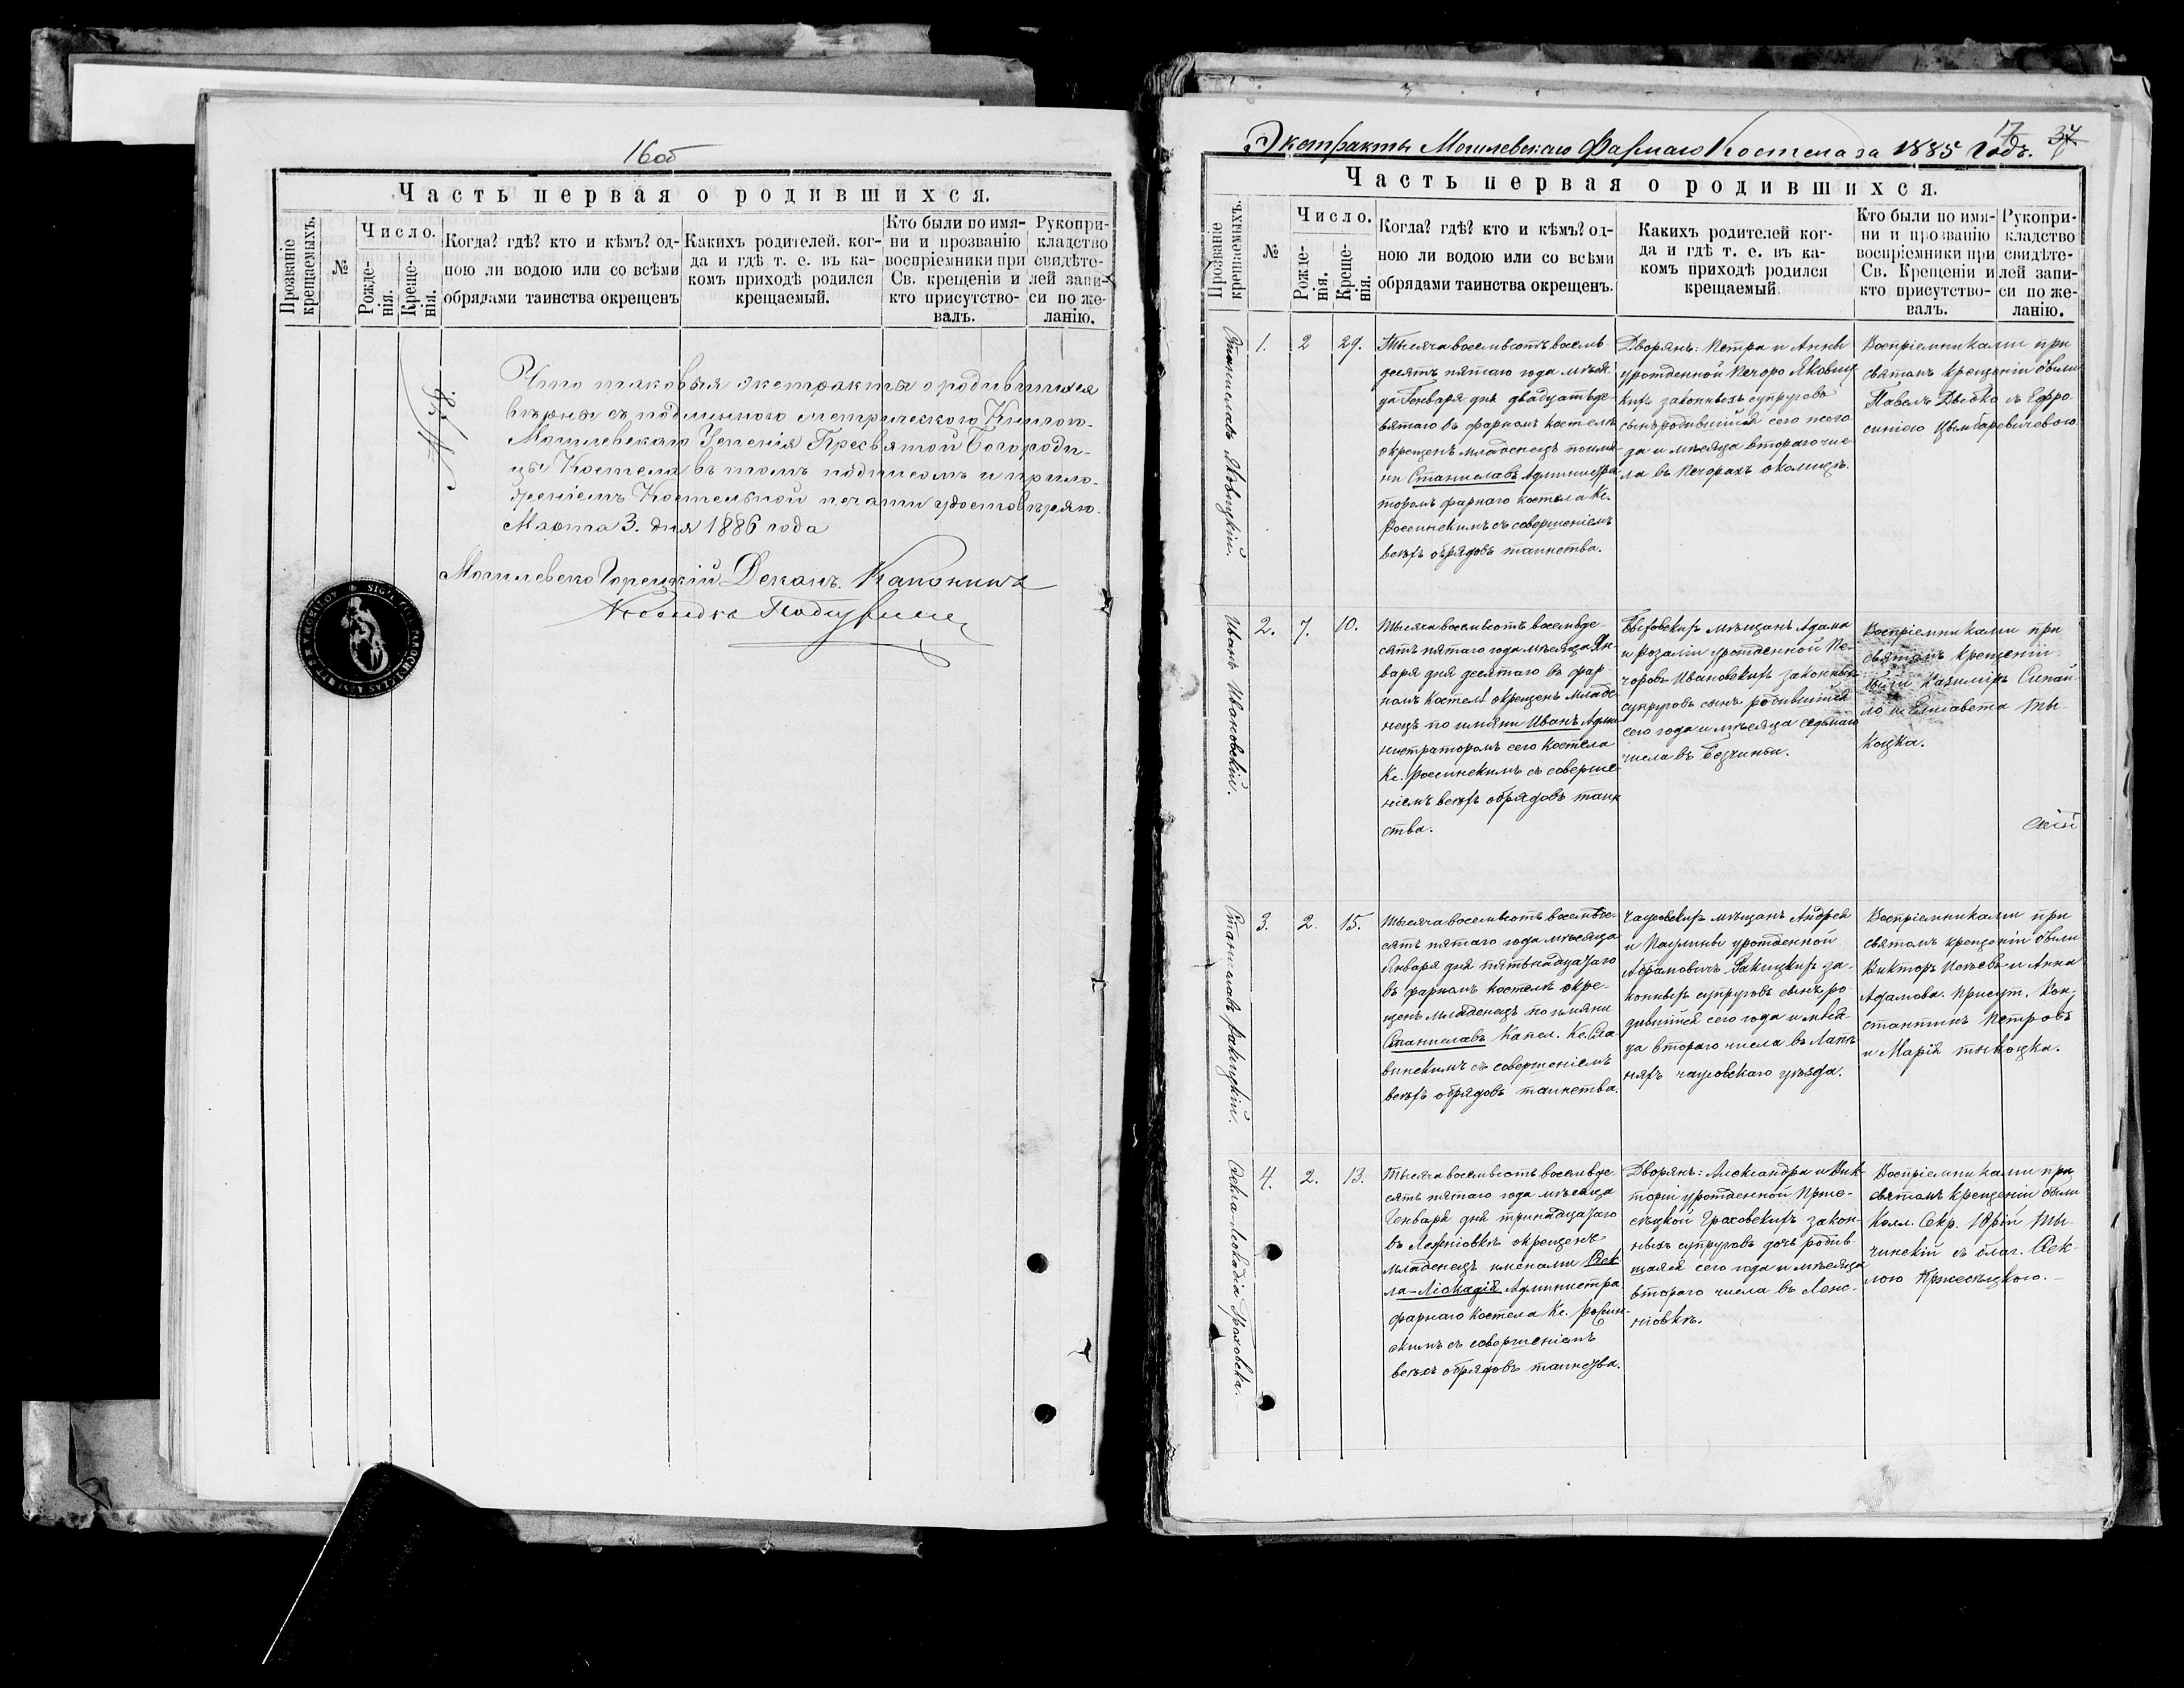 16об
Часть первая о родившихся.
Прозваніе крещаемыхъ.
№
Число.
Рожде-
нія.
Креще-
нія.
Когда? гдѣ? кто и кѣмъ? од-
ною ли водою или со всѣми
обрядами таинства окрещенъ
Какихъ родителей, ког-
да и гдѣ т. е. въ ка-
комъ приходѣ родился
крещаемый.
Кто были по имя-
ни и прозванію
воспріемники при
Св. крещеніи и
кто присутство-
валъ.
Рукопри-
кладство
свидѣте-
лей запи-
си по же-
ланію.
Что таковыя экстракты о родившихся
вѣрны съ подлинного метрическою Книгою
Могилевскаго Успенія Пресвятой Богороди-
цы Костела въ томъ подписомъ и прило-
женіемъ Костельной печати удостовѣряю.
Марта 3. дня 1886 года
Могилевско Горецкій Деканъ. Каноникъ
Экстракты Могилевскаго Фарнаго Костела за 1885 Годъ.
17
37
Часть первая о родившихся.
Прозваніе
крещаемыхъ.
№
Число.
Рожде-
нія.
Креще-
нія.
Когда? гдѣ? кто и кѣмъ? од-
ною ли водою или со всѣми
обрядами таинства окрещенъ.
Какихъ родителей ког-
да и гдѣ т. е. въ ка-
комъ приходѣ родился
крещаемый.
Кто были по имя-
ни и прозванію
воспріемники при
Св. Крещеніи и
кто присутство-
валъ.
Рукопри-
кладство
свидѣте-
лей запи-
си по же-
ланію.
Станиславъ Яковицкій.
1.
2
29.
Тысяча восемьсотъ восемь
десятъ пятаго года мѣся
ца Генваря дня двадцатьде-
вятаго въ фарномъ костелѣ
окрещенъ младенецъ по имя
ни Станиславъ Администра
торомъ фарнаго костела Кс.
Россинскимъ съ совершеніемъ
всѣхъ обрядовъ таинства.
Дворянъ: Петра и Анны
урожденной Печоро Яковиц
кихъ законныхъ супруговъ
сынъ родившійся сего же го
да и мѣсяца втораго чис
ла въ Печорахъ околицѣ.
Воспріемниками при
святомъ крещеніи были
Павелъ съ Ефро
синіею Цымбаревичевою
Иванъ Ивановскій.
2.
7.
10.
Тысяча восемьсотъ восемьде-
сятъ пятаго года мѣсяца Ян-
варя дня десятаго въ фар
номъ костелѣ окрещенъ младе-
нецъ по имяни Иванъ Адми
нистраторомъ сего костела
Кс. Россинскимъ съ соверше
ніемъ всѣхъ обрядовъ таин
ства.
Быховскихъ мѣщанъ Адама
и Розаліи урожденной Пе-
чоровъ Ивановскихъ законныхъ
супруговъ сынъ родившійся
сего года и мѣсяца седьмаго
числа въ
Воспріемниками при
святомъ крещеніи
были Казиміръ Сипай
ло и Елисавета Ты-
коцка.
Станиславъ Ракицкій.
3.
2.
15.
Тысяча восемьсотъ восемьде-
сятъ пятаго года мѣсяца
Января дня пятьнадцатаго
въ фарномъ костелѣ окре-
щенъ младенецъ по имяни
Станиславъ Капел. Кс. Сла
винскимъ съ совершеніемъ
всѣхъ обрядовъ таинства.
Чаусовскихъ мѣщанъ Андрея
и Паулины урожденной
Абрамовичъ Ракицкихъ за-
конныхъ супруговъ сынъ ро-
дившійся сего года и мѣся
ца втораго числа въ
чаусовскаго уѣзда.
Воспріемниками при
святомъ крещеніи были
Викторъ и Анна
Адамова. Присут. Кон-
стантинъ Петровъ
и Марія Тыкоцка.
Фекла-Леокадія Граховска.
4.
2.
13.
Тысяча восемьсотъ восемьде
сятъ пятаго года мѣсяца
Генваря дня тринадцатаго
въ окрещенъ
младенецъ именами Фек
ла-Леокадія Администра
фарнаго костела Кс. Россин-
скимъ съ совершеніемъ
всѣхъ обрядовъ таинства.
Дворянъ: Александра и Вик
торіи урожденной Прже-
сѣцкой Граховскихъ закон-
ныхъ супруговъ дочь родив-
щаяся сего года и мѣсяца
втораго числа въ
Воспріемниками при
святомъ крещеніи были
Колл. Секр. Юрій Ты-
чинскій съ благ. Фек-
лою Пржесѣцкого.